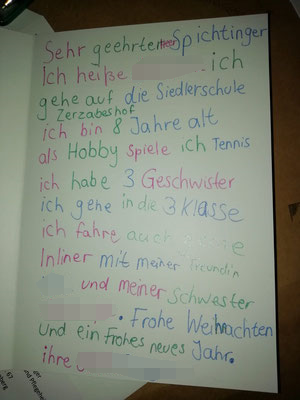 Sehr geehrter Herr Spichtinger
Ich heiße ich
gehe auf die Siedlerschule
Zerzabeshof
ich bin 8 Jahre alt
als Hobby spiele ich Tennis
ich habe 3 Geschwister
ich gehe in die 3 Klasse
ich fahre auch
Inliner mit meiner Freundin
und meiner Schwester
. Frohe Weihnachten
und ein Frohes neues Jahr.
ihre
67